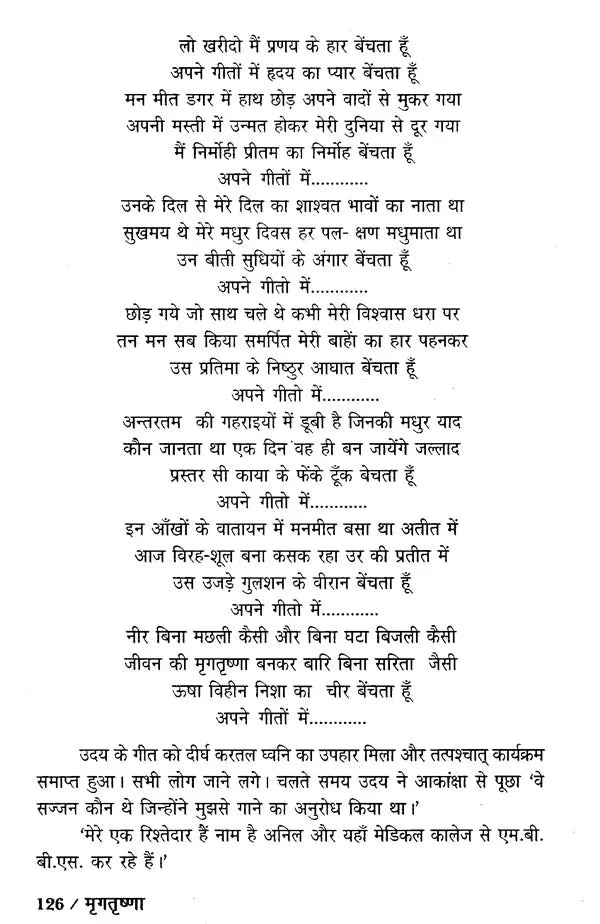 लो खरीदो मैं प्रणय के हार बेंचता हूँ
अपने गीतों में हृदय का प्यार बेंचता हूँ
मन मीत डगर में हाथ छोड़ अपने वादों से मुकर गया
अपनी मस्ती में उन्मत होकर मेरी दुनिया से दूर गया
मैं निर्मोही प्रीतम का निर्मोह बेंचता हूँ
अपने गीतों में............
उनके दिल से मेरे दिल का शाश्वत भावों का नाता था
सुखमय थे मेरे मधुर दिवस हर पल- क्षण मधुमाता था
उन बीती सुधियों के अंगार बेंचता हूँ
अपने गीतो में............
छोड़ गये जो साथ चले थे कभी मेरी विश्वास धरा पर
तन मन सब किया समर्पित मेरी बाहों का हार पहनकर
उस प्रतिमा के निष्ठुर आघात बेंचता हूँ
अपने गीतो में............
अन्तरतम की गहराइयों में डूबी है जिनकी मधुर याद
कौन जानता था एक दिन वह ही बन जायेंगे जल्लाद
प्रस्तर सी काया के फेंके टूँक बेचता हूँ
अपने गीतो में............
इन आँखों के वातायन में मनमीत बसा था अतीत में
आज विरह-शूल बना कसक रहा उर की प्रतीत में
उस उजड़े गुलशन के वीरान बेंचता हूँ
अपने गीतो में............
नीर बिना मछली कैसी और बिना घटा बिजली कैसी
जीवन की मृगतृष्णा बनकर बारि बिना सरिता जैसी
ऊषा विहीन निशा का चीर बेंचता हूँ
अपने गीतों में............
उदय के गीत को दीर्घ करतल घ्वनि का उपहार मिला और तत्पश्चात् कार्यक्रम
समाप्त हुआ। सभी लोग जाने लगे। चलते समय उदय ने आकांक्षा से पूछा 'वे
सज्जन कौन थे जिन्होंने मुझसे गाने का अनुरोध किया था।'
'मेरे एक रिश्तेदार हैं नाम है अनिल और यहाँ मेडिकल कालेज से एम.बी.
बी.एस. कर रहे हैं।'
126 / मृगतृष्णा